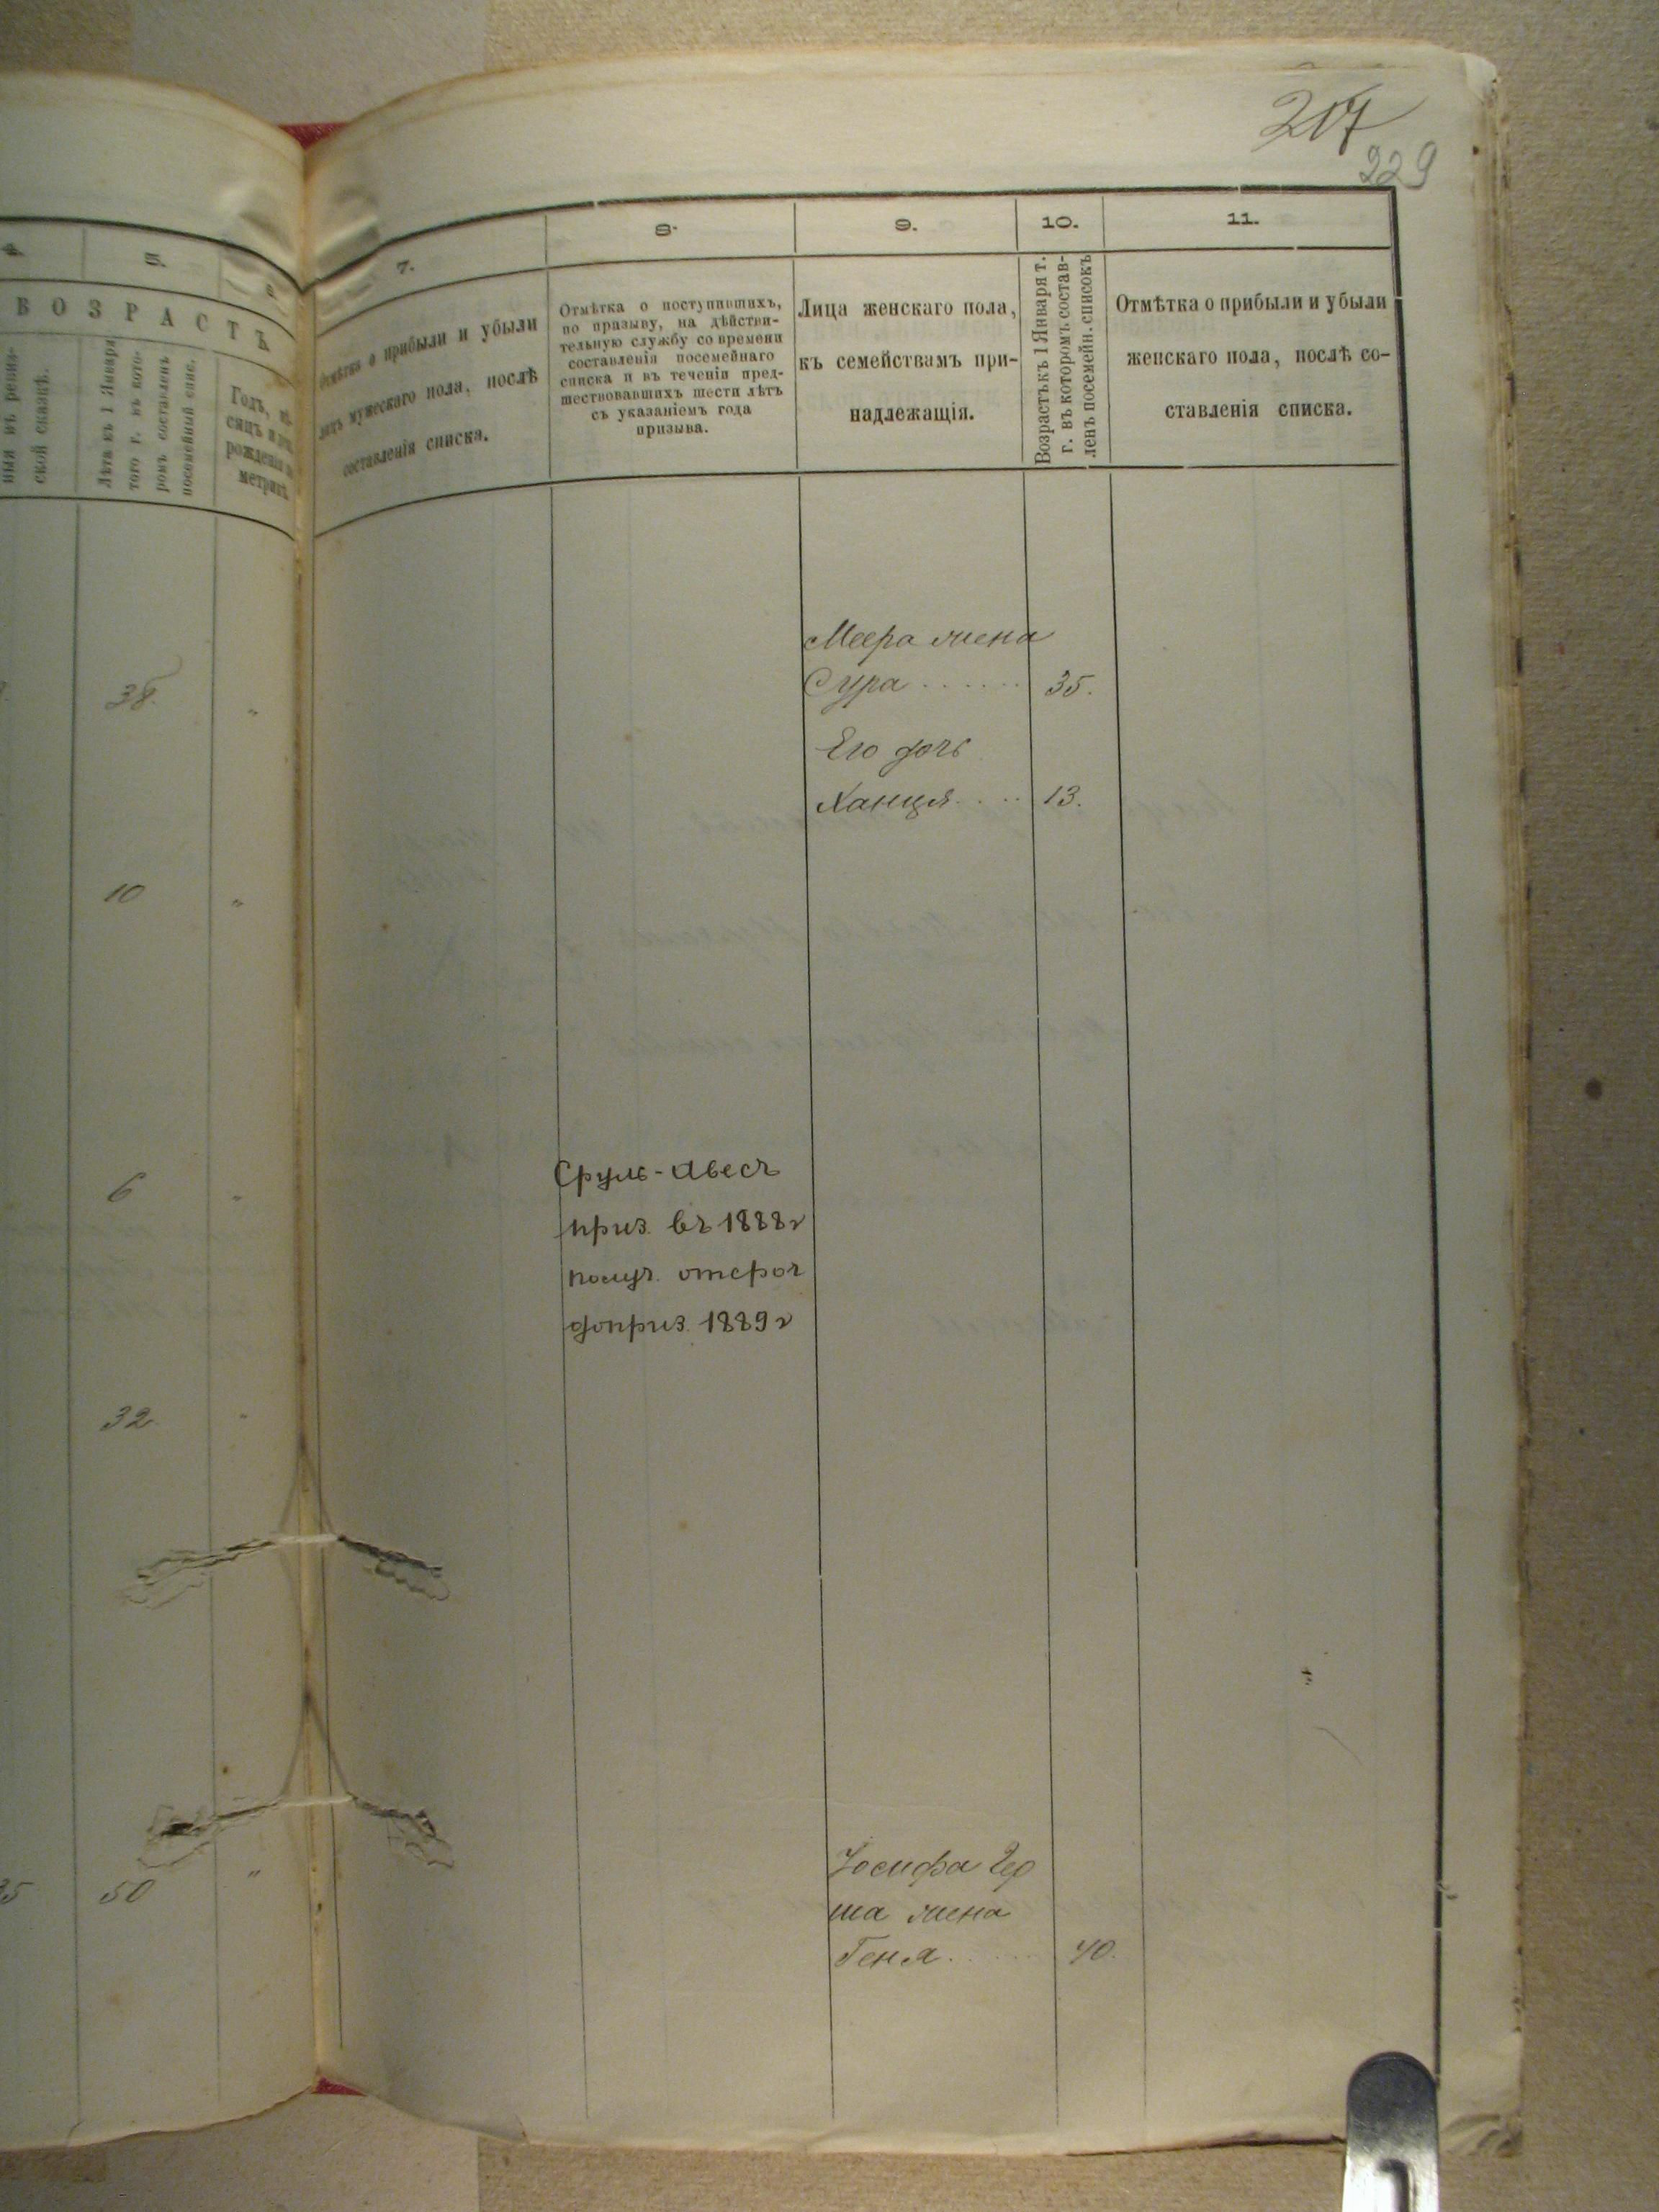 217
229
4.
5.
ВОЗРАСТЪ
ской сказкѣ.
Лѣта къ 1 Января
того г. въ кото-
ромъ составленъ
посемейный спис.
Годъ, мѣ-
сяцъ и
рожденія
метрик
38.
"
10
"
6
"
32
"
50
"
7.
8.
9.
10.
11.
Отмѣтка о прибыли и убыли
лицъ мужескаго пола, послѣ
составленія списка.
Отмѣтка о поступившихъ,
по призыву, на дѣйстви-
тельную службу со времени
составленія посемейнаго
списка и въ теченіи пред-
шествовавшихъ шести лѣтъ
съ указаніемъ года
призыва.
Лица женскаго пола,
къ семействамъ при-
надлежащія.
Возрастъ къ 1 Января т.
г. въ которомъ состав-
ленъ посемейн. списокъ
Отмѣтка о прибыли и убыли
женскаго пола, послѣ со-
ставленія списка.
Меера жена
Сура . . . . . . 35.
Его дочь
Ханця . . . . 13.
Сруль-Авесъ
приз. въ 1888 г
получ. отсроч
до приз. 1889 г
Іосифа Гер
ша жена
Геня . . . . . 40.